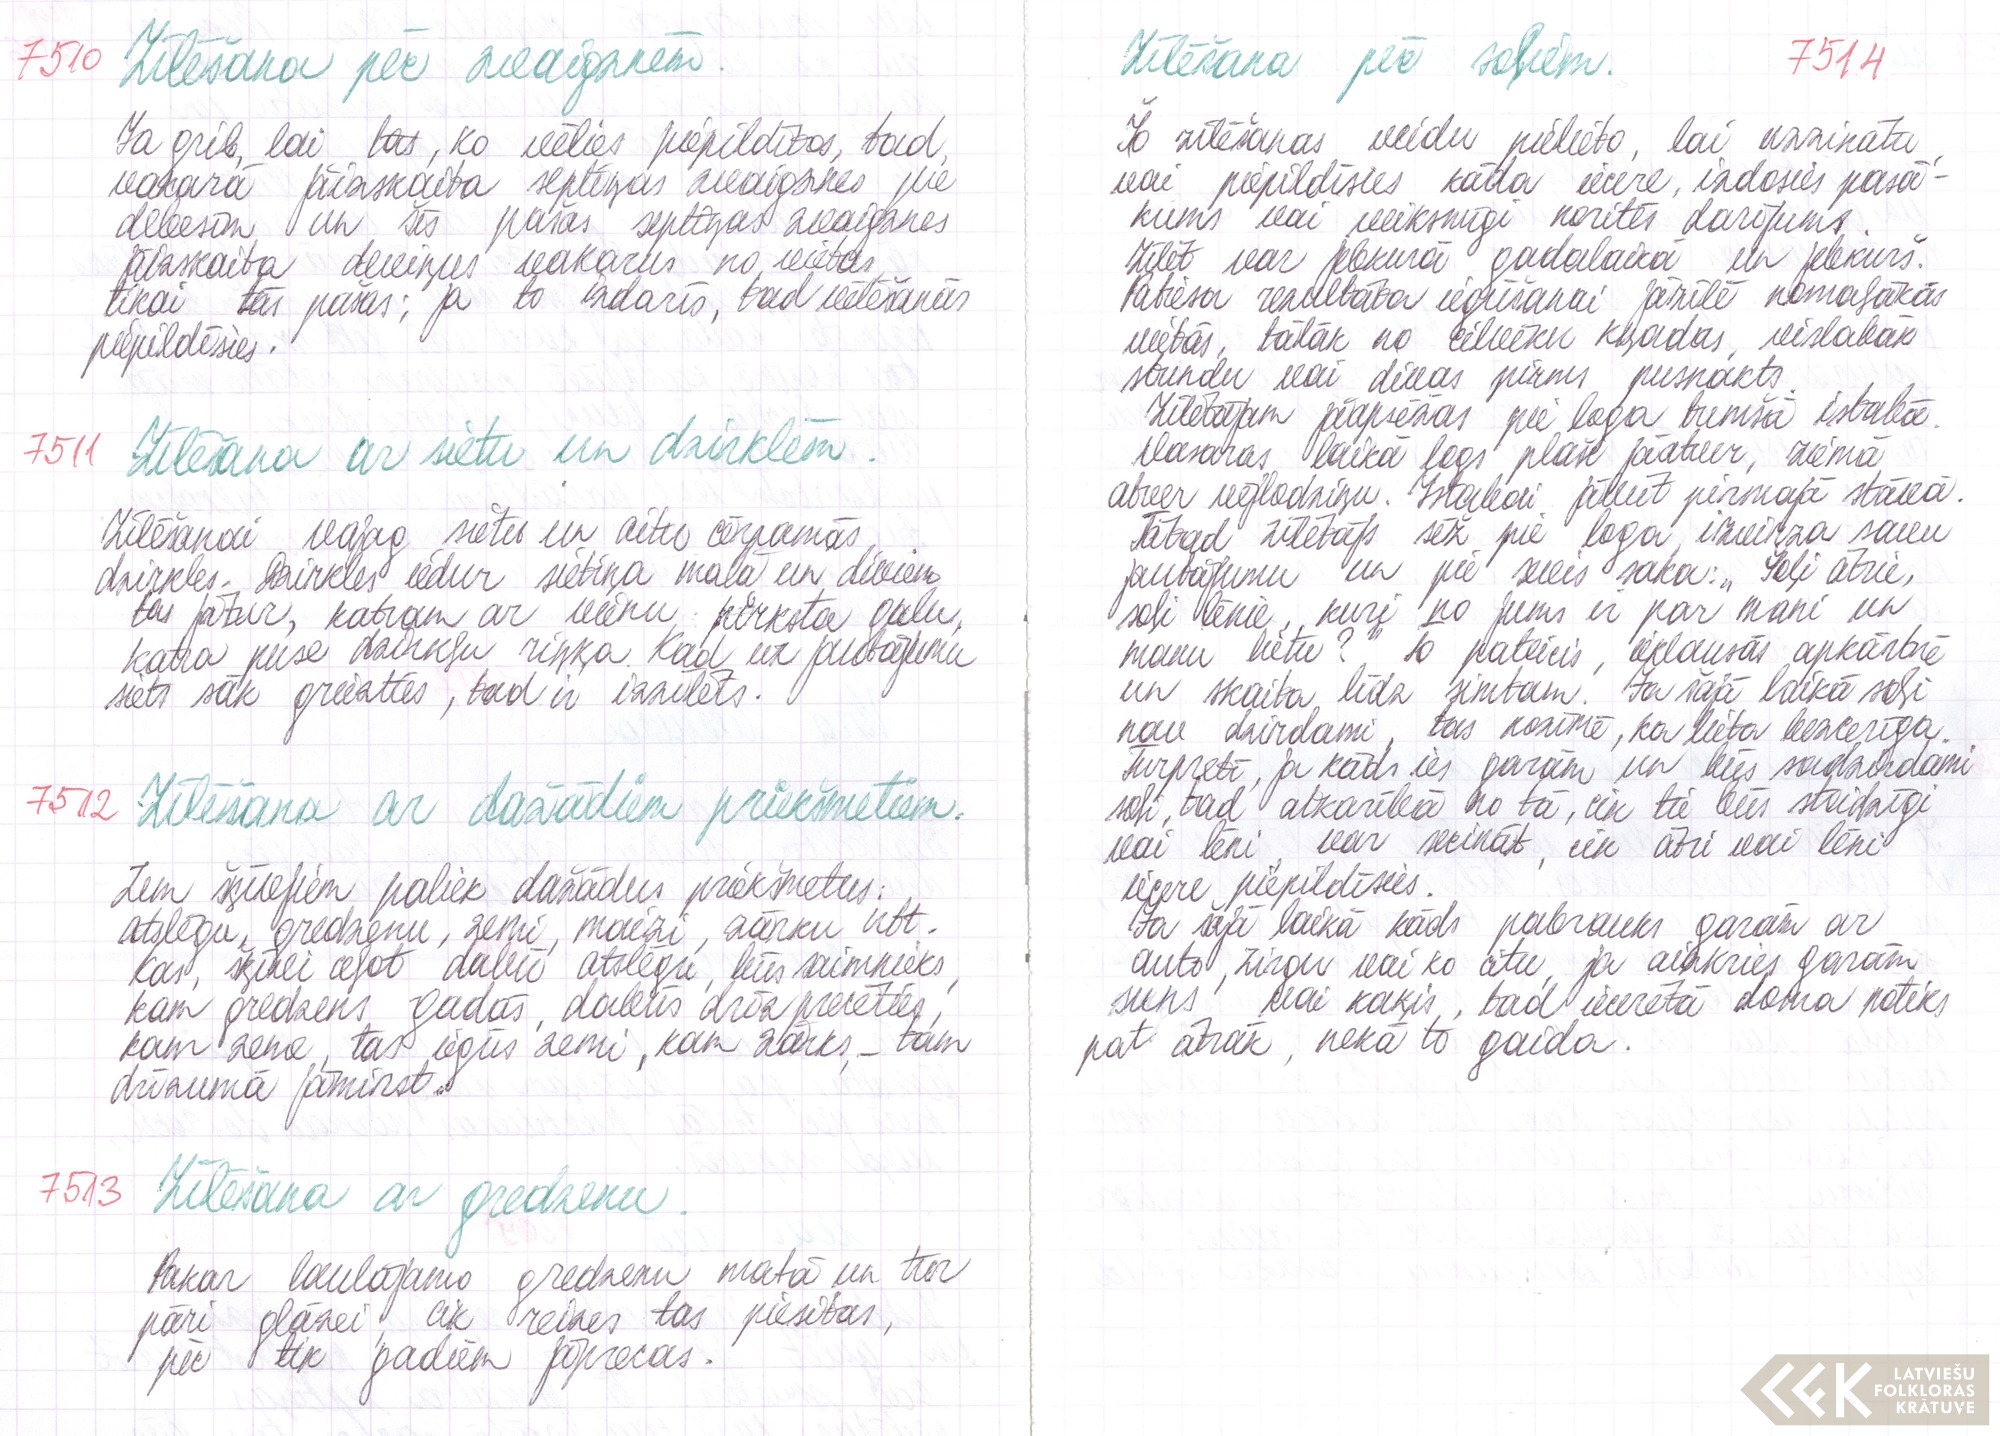 7510 Zīlēšana pēc zvaigznēm.
Ja grib, lai tas, ko vēlies piepildītos, tad
vakarā jāizskaita septiņas zvaigznes pie
debesīm un šīs pašas septiņas zvaigznes
jāizskaita deviņus vakarus no vietas
tikai tās pašas; ja to izdarīs, tad vēlēšanās
piepildīsies.
7511 Zīlēšana ar sietu un dzirklēm.
Zīlēšanai vajag sietu un aitu cērpamās
dzirkles. Dzirkles iedur sietiņa malā un diviem
tās jātur, katram ar vienu pirksta galu,
katra puse dzirkļu riņķa. Kad uz jautājumu
siets sāk griezties, tad ir izzīlēts.
7512 Zīlēšana ar dažādiem priekšmetiem.
Zem šķīvjiem paliek dažādus priekšmetus:
atslēgu, gredzenu, zemi, maizi, zārku utt.
Kas, šķīvi ceļot dabū atslēgu, būs saimnieks,
kam gredzens gadās, dabūs drīz precēties,
kam zeme, tas iegūs zemi, kam zārks, – tam
drīzumā jāmirst.
7513 Zīlēšana ar gredzenu.
Pakar laulājamo gredzenu matā un tur
pāri glāzei, cik reizes tas piesitas,
pēc tik gadiem jāprecas.
Zīlēšana pēc soļiem. 7514
Šo zīlēšanas veidu pielieto, lai uzzinātu,
vai piepildīsies kāda iecere, izdosies pasā-
kums vai veiksmīgi noritēs darījums.
Zīlēt var jebkurā gadalaikā un jebkurš.
Patiesa rezultāta iegūšanai jāzīlē nomaļākās
vietās, tālāk no cilvēku kņadas, vislabāk
stundu vai divas pirms pusnakts.
Zīlētājam jāapsēžas pie loga tumšā istabā.
Vasaras laikā logs plaši jāatver, ziemā
atver vējlodziņu. Istabai jābūt pirmajā stāvā.
Tātad zīlētājs sēž pie loga, izvirza savu
jautājumu un pie sevis saka: „Soļi ātrie,
soļi lēnie, kuri no jums ir par mani un
manu lietu?" To pateicis, ieklausās apkārtnē
un skaita līdz simtam. Ja šajā laikā soļi
nav dzirdami, tas nozīmē, ka lieta bezcerīga.
Turpretī, ja kāds ies garām un būs sadzirdami
soļi, tad atkarībā no tā, cik tie būs steidzīgi
vai lēni, var secināt, cik ātri vai lēni
iecere piepildīsies.
Ja šajā laikā kāds pabrauks garām ar
auto, zirgu vai ko citu, ja aizskries garām
suns vai kaķis, tad iecerētā doma notiks
pat ātrāk, nekā to gaida.
LATVIEŠU
FOLKLORAS
KRĀTUVE